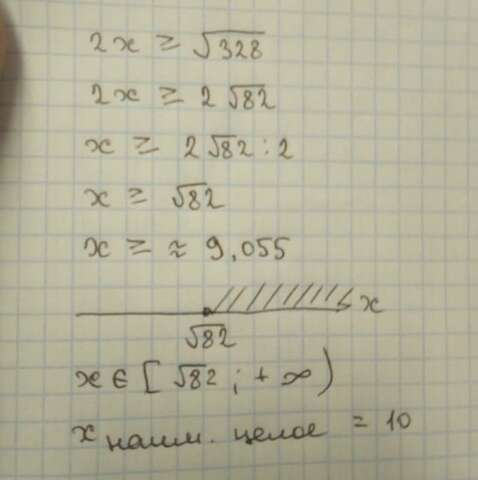 2x ≥ √328
2x ≥ 2√82
x ≥ 2√82 : 2
x ≥ √82
x ≥ ≈ 9,055
x
√82
x ∈ [√82 ; + ∞)
x наим. целое = 10